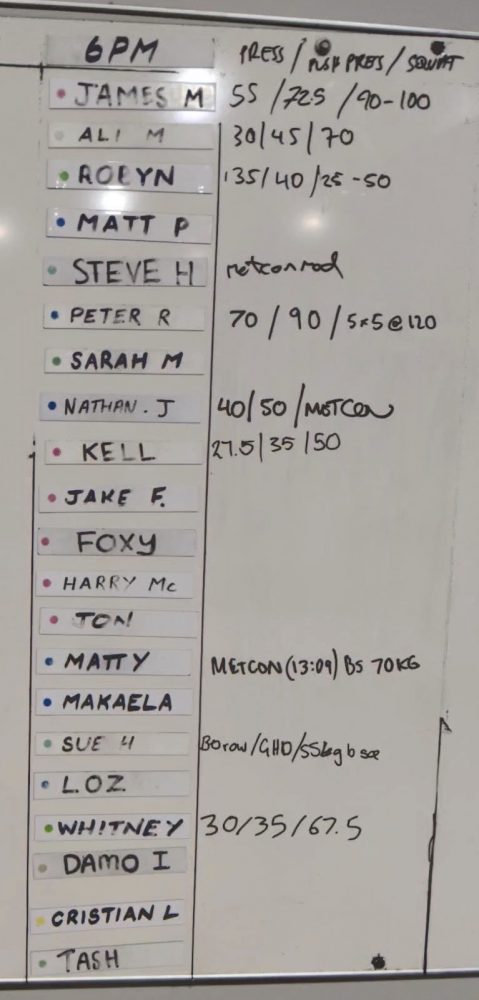 6PM PRESS / PUSH PRESS / SQUAT
JAMES M 55 / 72.5 / 90-100
ALI M 30/45/70
ROBYN 35/40/25-50
MATT P
STEVE H metcon mod
PETER R 70 / 90 / 5x5@120
SARAH M
NATHAN.J 40/50/METCON
KELL 27.5/35/50
JAKE F.
FOXY
HARRY Mc
TON
MATTY METCON(13:09) BS 70KG
MAKAELA
SUE H /GHD/55kg
LOZ
WHITNEY 30/35/67.5
DAMO I
CRISTIAN L
TASH